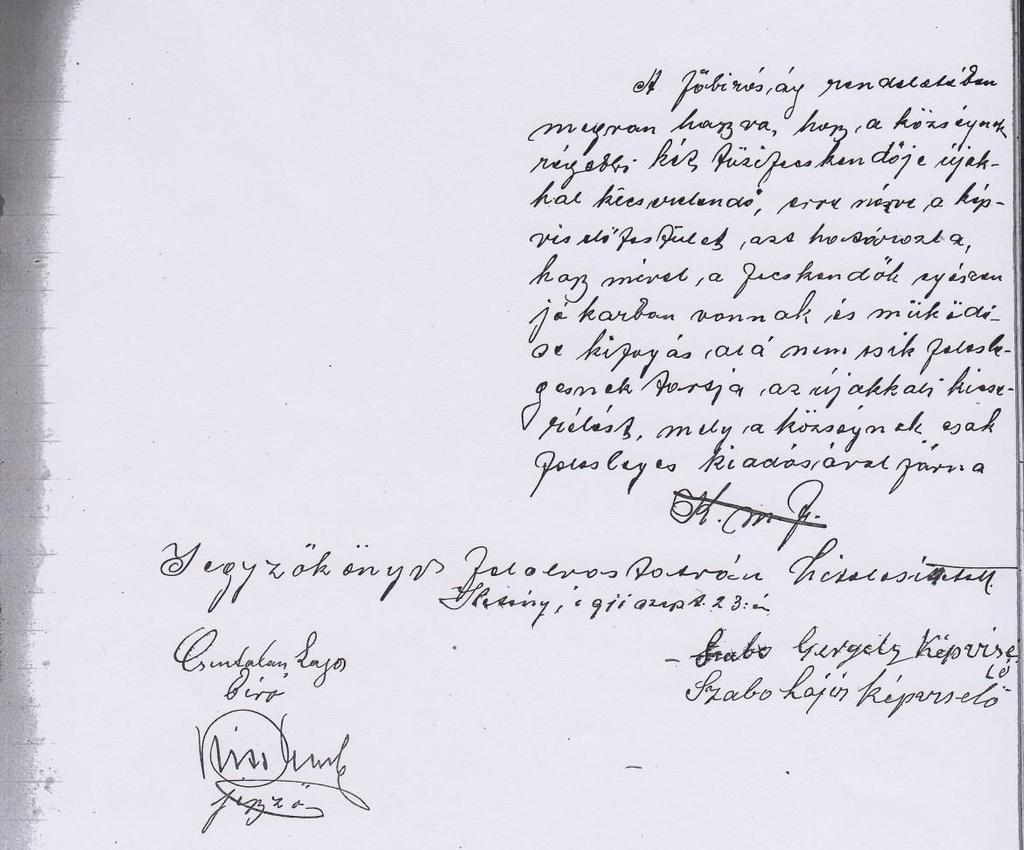 A főbiróság rendeletében
megvan hagyva, hogy a községnek
régebbi két tüzifecskendője újak-
kal kicserelendő, erre nézve a kép-
viselőtestület azt határozta,
hogy mivel a fecskendők egészen
jó karban vannak és müködé-
se kifogás alá nem esik feles-
gesnek tartja az újakkali kicse-
rélést, mely a községnek csak
felesleges kiadásával járna
K. m. f.
Jegyzőkönyv felolvastatván hitelesittetett.
szept. 23:án
Csintalan Lajos
biró
Gergely Képvise
lő
Szabo Lajos képviselő
Kiss
jegyző